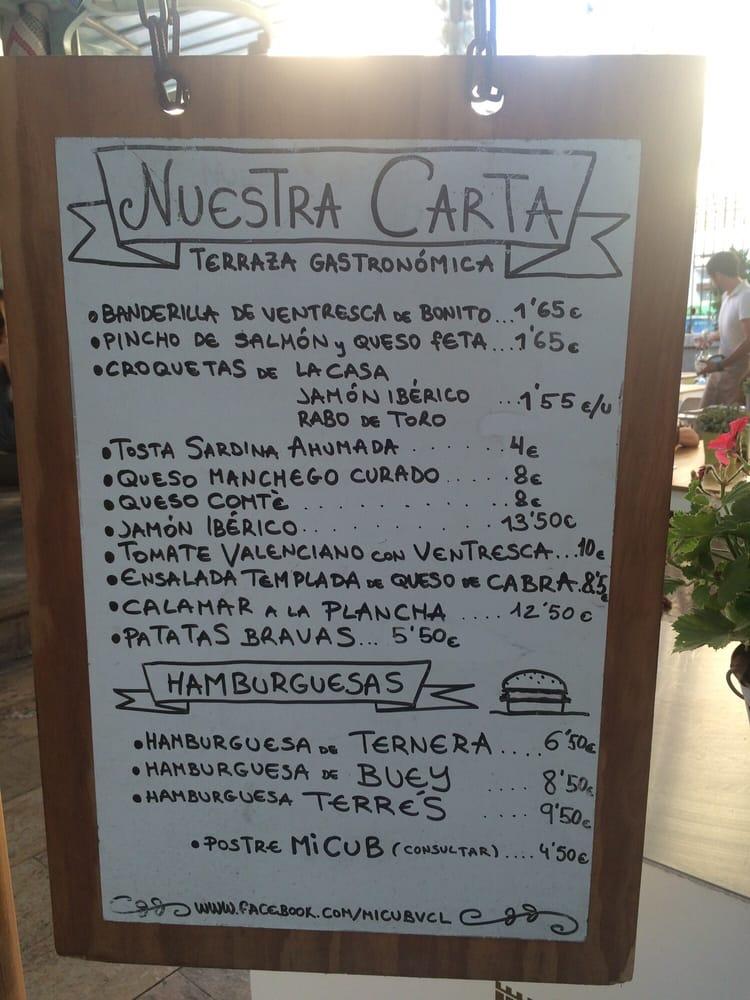 NUESTRA CARTA
TERRAZA GASTRONÓMICA
• BANDERILLA DE VENTRESCA DE BONITO...1'65€
• PINCHO DE SALMÓN y QUESO FETA...1'65€
• CROQUETAS DE LA CASA
JAMÓN IBÉRICO ...1'55€/u
RABO DE TORO
• TOSTA SARDINA AHUMADA . . . . . . 4€
• QUESO MANCHEGO CURADO . . . . . 8€
• QUESO COMTÈ . . . . . . . . . . . . 8€
• JAMÓN IBÉRICO . . . . . . . . . . 13'50€
• TOMATE VALENCIANO CON VENTRESCA...10€
• ENSALADA TEMPLADA DE QUESO DE CABRA.8'5€
• CALAMAR A LA PLANCHA .... 12'50€
• PATATAS BRAVAS... 5'50€
HAMBURGUESAS
• HAMBURGUESA DE TERNERA .... 6'50€
• HAMBURGUESA DE BUEY .... 8'50€
• HAMBURGUESA TERRE'S .... 9'50€
• POSTRE MiCUB (CONSULTAR) .... 4'50€
WWW.FACEBOOK.COM/MICUBVCL